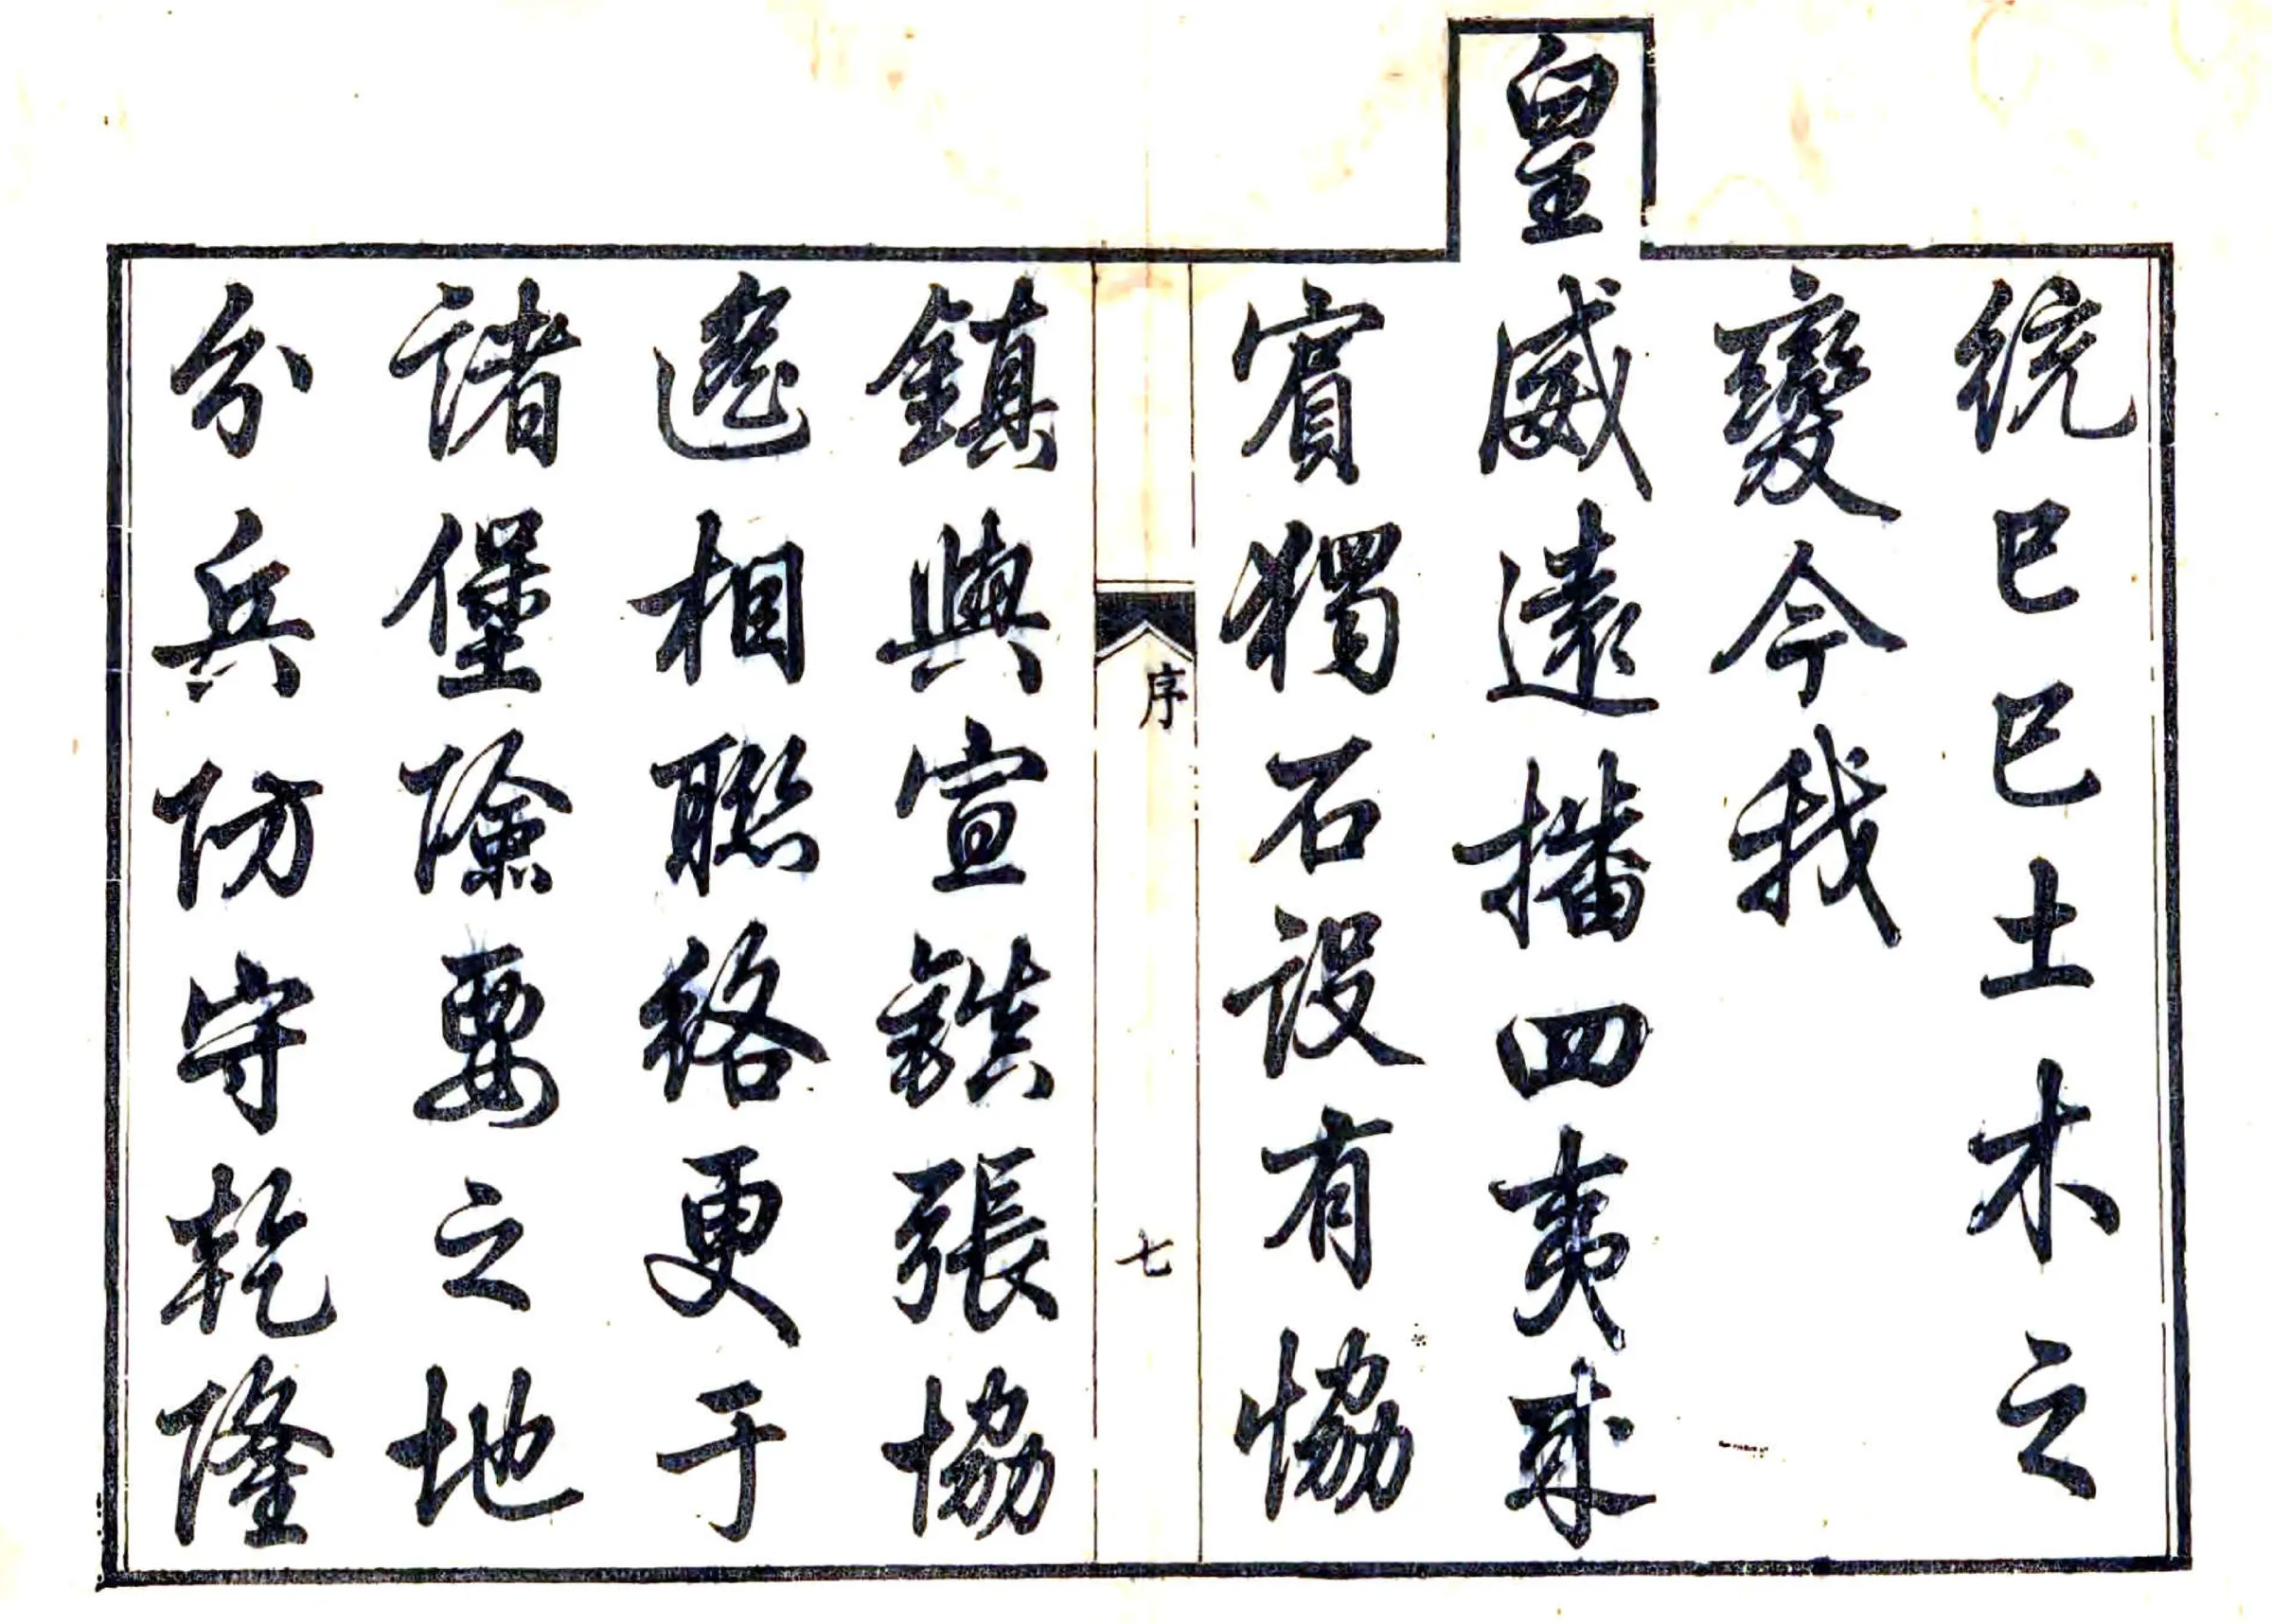 統巳巳土木之
變今我
皇威遠播四夷來
賓獨石設有協
序
七
鎮與宣鎮張協
遙相聯絡更于
諸堡險要之地
分兵防守乾隆